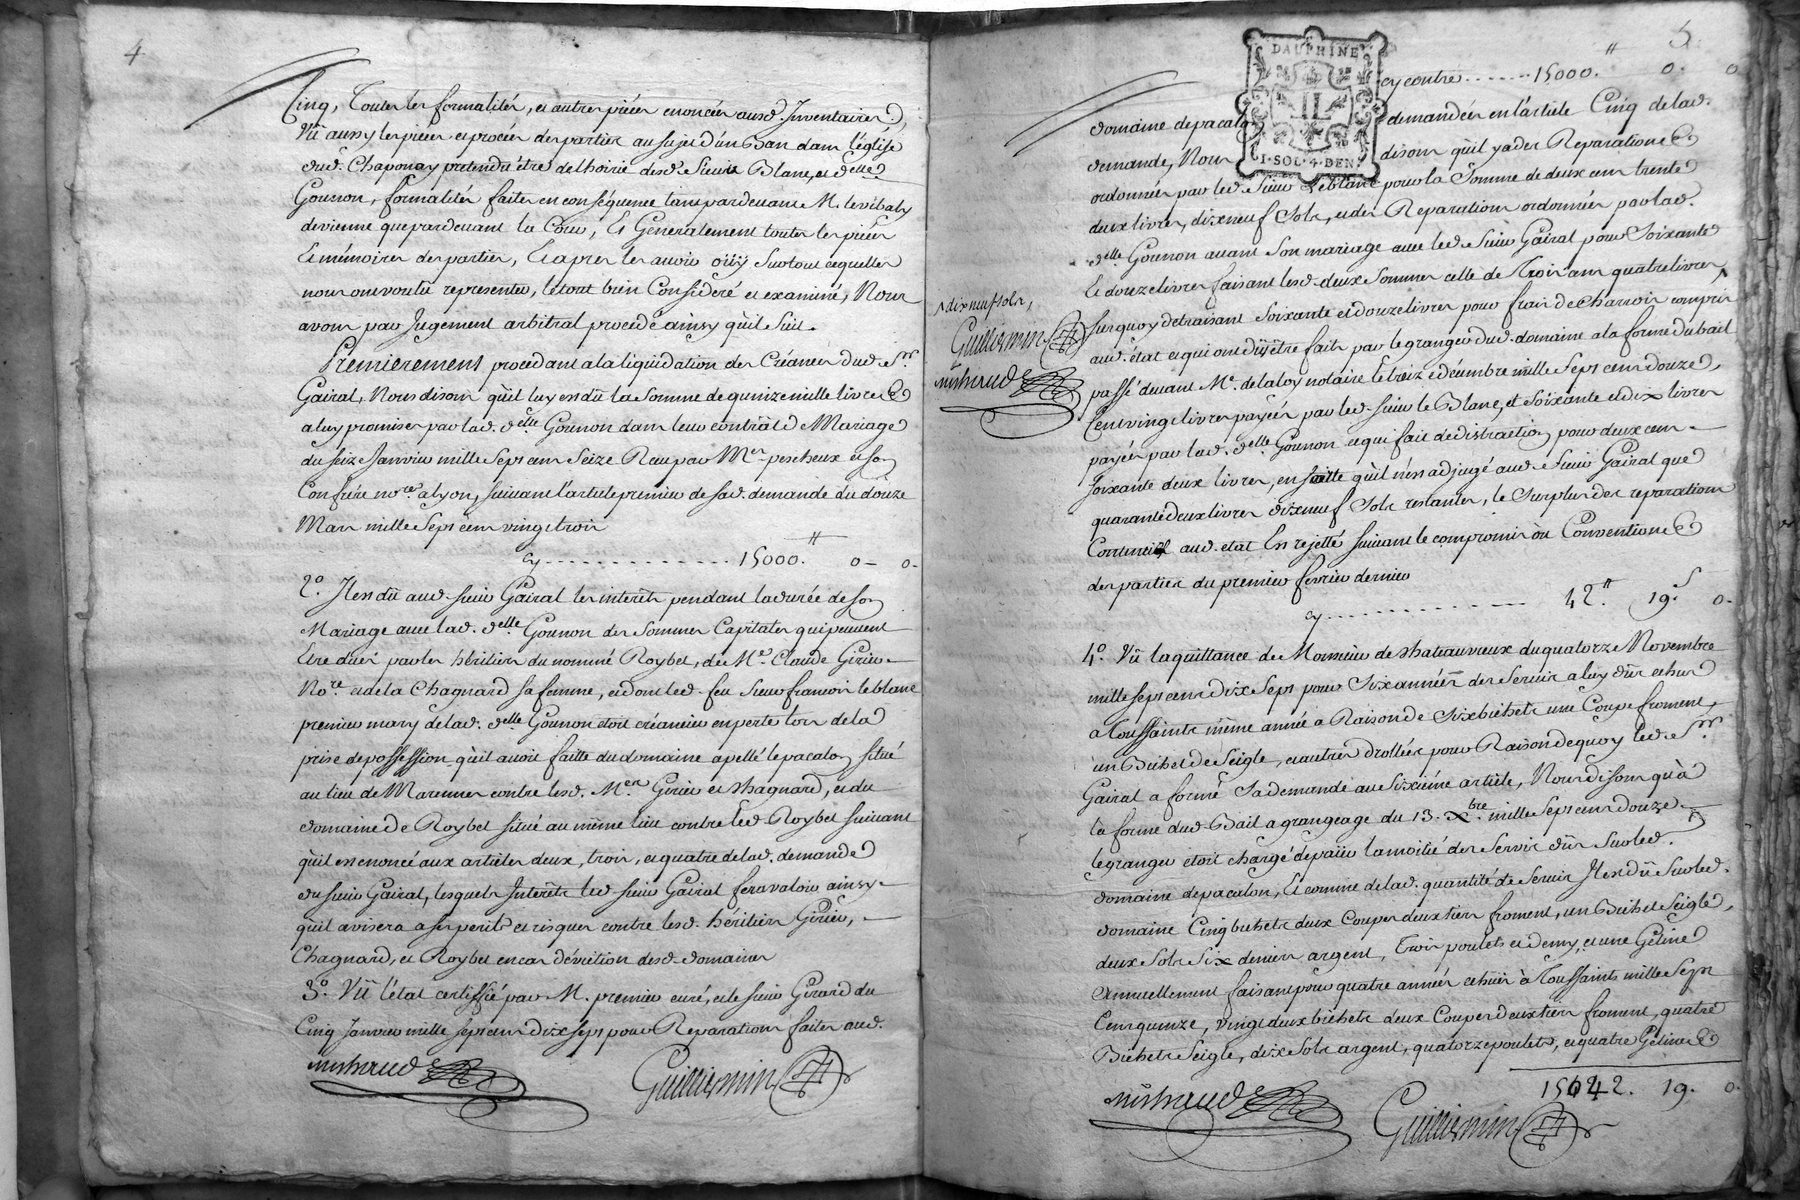 4
Cinq, Toutes les formalités, et autres pièces enoncées ausd. Inventaires,
Vû aussy les pièces et procès des parties au sujet d'un Ban dans l'église
dud. Chaponay pretendu être de l'hoirie desd. Sieurs Blanc, et delle
Gounon, formalités faites en conséquence tant pardevant M. le vibaly
de vienne que pardevant la Cour, Et Generalement toutes les pièces
Et mémoires des parties, Et après les avoir oüÿ sur tout ce qu'elles
nous ont voulu representer, le tout bien Consideré et examiné, Nous
avons par Jugement arbitral procedé ainsy qu'il suit.
Premierement procedant a la liquidation des Créances dud. Sr.
Gairal, Nous disons qu'il luy est dû la Somme de quinze mille livres
a luy promises par lad. delle Gounon dans leur contrat de Mariage
du seize Janvier mille sept cens seize Reçu par Mes. pescheux et son
Confrère nore. a lyon, suivant l'article premier de sad. demande du douze
Mars mille sept cens vingt trois
cy ............... 15000.# 0 - 0.
2o. Il est dû aud. sieur Gairal les interêts pendant la durée de son
Mariage avec lad. delle. Gounon des Sommes Capitales qui peuvent
Etre dües par les héritiers du nommé Roybet, de Me. Claude Girieu
Nore. et de la Chagnard sa femme, et dont led. feu Sieur françois le blanc
premier mary de lad. delle Gounon étoit créancier en perte lors de la
prise de possession qu'il avoit faitte du domaine apellé le pacalon situé
au lieu de Marennes contre lesd. Mes. Girieu et Chagnard, et du
domaine de Roybet situé au même lieu contre led. Roybet suivant
qu'il est enoncé aux articles deux, trois, et quatre de lad. demande
du sieur Gairal, lesquels Interêts led. sieur Gairal fera valoir ainsy
qu'il avisera a ses perils et risques contre lesd. héritiers Girieu,
Chagnard, et Roybet en cas d'éviction desd. domaines
3o. Vû l'état certiffié par M. premier curé, et le sieur Girard du
Cinq Janvier mille sept cens dix sept pour Reparations faites aud.
michaud Guillermin
5
DAUPHINE
1. SOL. 4. DEN.
cy contre ....... 15000.# 0. 0
domaine de pacalon demandées en l'article Cinq de lad.
demande, Nous disons qu'il y a des Reparations
ordonnées par led. Sieur Leblanc pour la Somme de deux cens trente
deux livres, dix neuf sols, et des Reparations ordonnées par lad.
delle Gounon avant son mariage avec led. Sieur Gairal pour soixante
Et douze livres faisant lesd. deux Sommes celle de Trois cens quatre livres,
sur quoy detraisant soixante et douze livres pour frais de charrois compris
aud. état et qui ont dû être faits par le granger dud. domaine a la forme du bail
passé devant Me. delaloy notaire le treize décembre mille sept cens douze,
Cent vingt livres payées par led. sieur le Blanc, et soixante et dix livres
payées par lad. delle Gounon ce qui fait de distraction pour deux cens
soixante deux livres, en sorte qu'il n'est adjugé aud. Sieur Gairal que
quarante deux livres dix neuf sols restantes, le Surplus des reparations
Contenües aud. état Est rejetté suivant le compromis où Conventions
des parties du premier fevrier dernier
cy ............... 42.# 19.s 0.
dix neuf sols,
Guillermin
michaud
4o. Vû la quittance de Monsieur de chateauvieux du quatorze Novembre
mille sept cens dix sept pour six années des Servis a luy dûs echus
a Toussaints même année a Raison de six bichets une Coupe froment,
un Bichet de Seigle, et autres drollées pour Raison de quoy led. Sr.
Gairal a formé Sa demande au Sixième article, Nous disons qu'à
la forme dud. Bail a grangeage du 13. Xbre. mille sept cens douze
le granger étoit chargé de païer la moitié des Servis dûs sur led.
domaine de pacalon, Et comme de lad. quantité de Servis Il est dû sur led.
domaine Cinq bichets deux Coupes deux tiers froment, un Bichet Seigle,
deux Sols Six deniers argent, Trois poulets et demy, et une Geline
Annuellement faisant pour quatre années echües à Toussaints mille sept
Cens quinze, vingt deux bichets deux Coupes deux tiers froment, quatre
Bichets Seigle, dix Sols argent, quatorze poulets, et quatre Gelines
15042. 19. 0.
michaud Guillermin